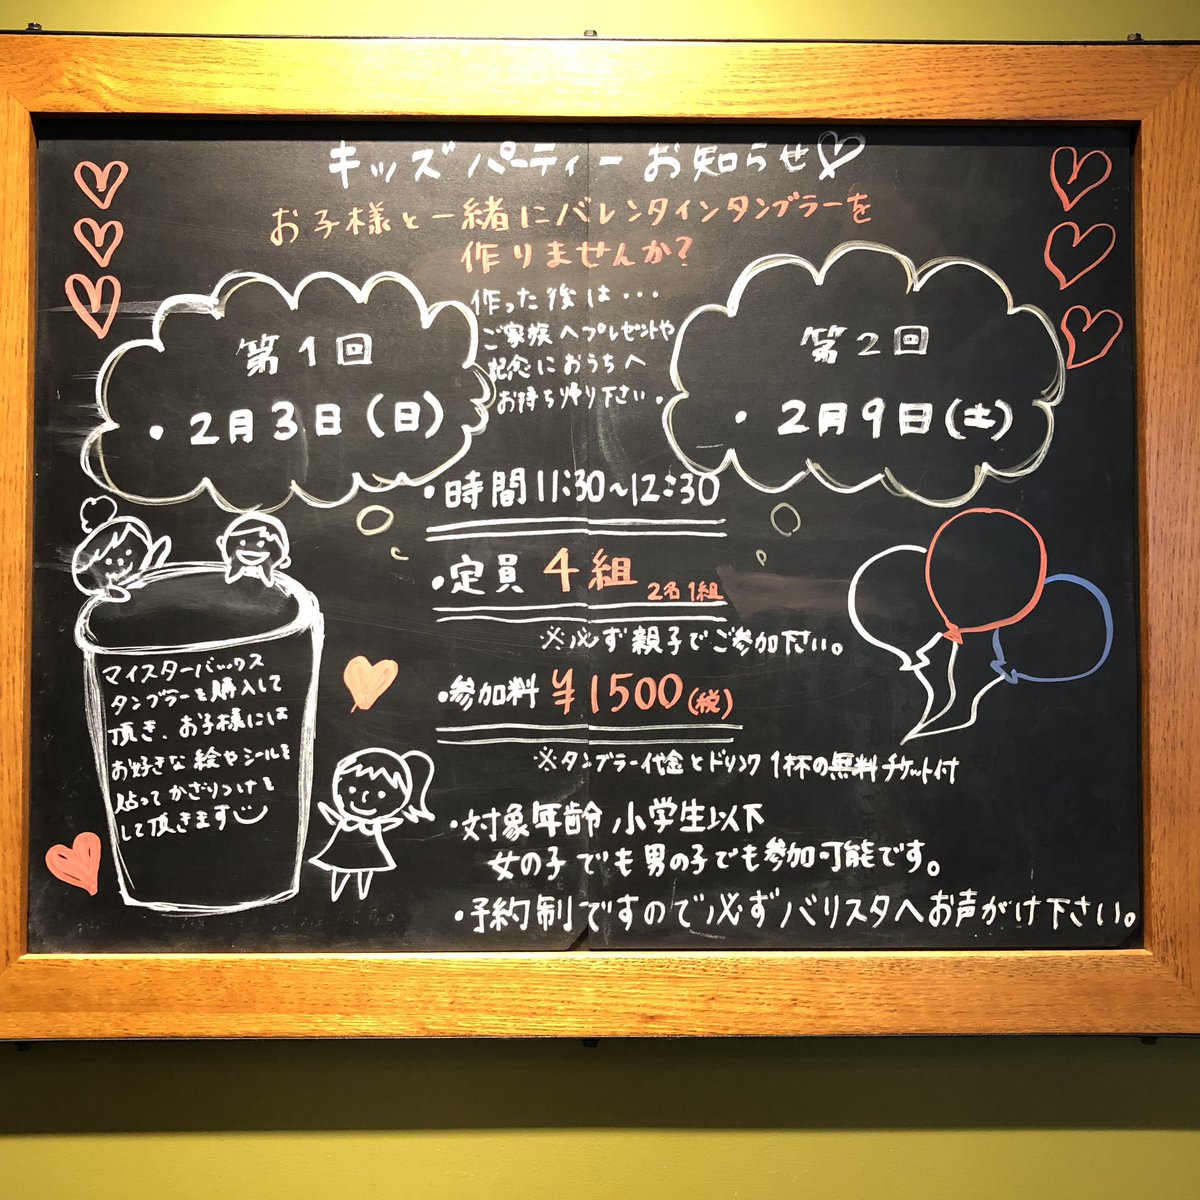 キッズパーティーお知らせ♡
お子様と一緒にバレンタインタンブラーを
作りませんか?
作った後は・・・
ご家族へプレゼントや
記念におうちへ
お持ち帰り下さい。
第1回
・2月3日(日)
第2回
・2月9日(土)
・時間11:30~12:30
・定員 4組 2名1組
※必ず親子でご参加下さい。
・参加料 ¥1500(税)
※タンブラー代金とドリンク1杯の無料チケット付
・対象年齢 小学生以下
女の子でも男の子でも参加可能です。
・予約制ですので必ずバリスタへお声がけ下さい。
マイスターバックス
タンブラーを購入して
頂き、お子様には
お好きな絵やシールを
貼ってかざりつけを
して頂きます